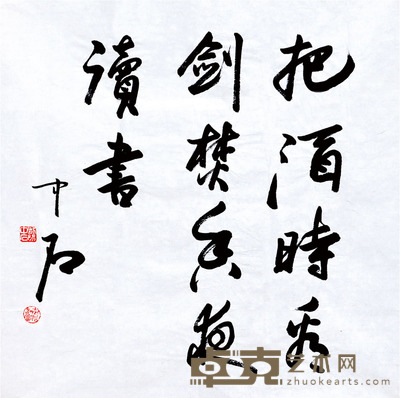 把酒時看
剑焚香夜
讀書
中石
卓克艺术网
zhuokearts.com